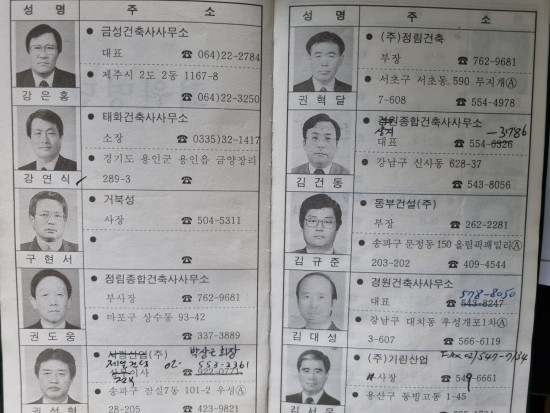 성 명 주 소
금성건축사사무소
대표 ☎ 064)22-2784
제주시 2도 2동 1167-8
☎ 064)22-3250
강은홍
태화건축사사무소
소장 ☎ (0335)32-1417
경기도 용인군 용인읍 금양장리
289-3 ☎
강연식
거북성
사장 ☎ 504-5311
☎
구현서
정림종합건축사사무소
부사장 ☎ 762-9681
마포구 상수동 93-42
☎ 337-3889
권도웅
박상근 회장
02- 553-3361
송파구 잠실7동 101-2 우성Ⓐ
28-205 ☎ 423-9821
성 명 주 소
(주)정림건축
부장 ☎ 762-9681
서초구 서초동 590 무지개Ⓐ
7-608 ☎ 554-4978
권혁달
종합건축사사무소
-3786
대표 ☎ 554-8326
강남구 신사동 628-37
☎ 543-8056
김건동
동부건설(주)
부장 ☎ 262-2281
송파구 문정동 150 올림픽패밀리Ⓐ
203-202 ☎ 409-4544
김규준
경원건축사사무소
578-8050
대표 ☎ 543-8247
강남구 대치동 우성개포1차Ⓐ
3-607 ☎ 566-6119
김대성
(주)기린산업
사장 ☎ 549-6661
용산구 동빙고동 1-45